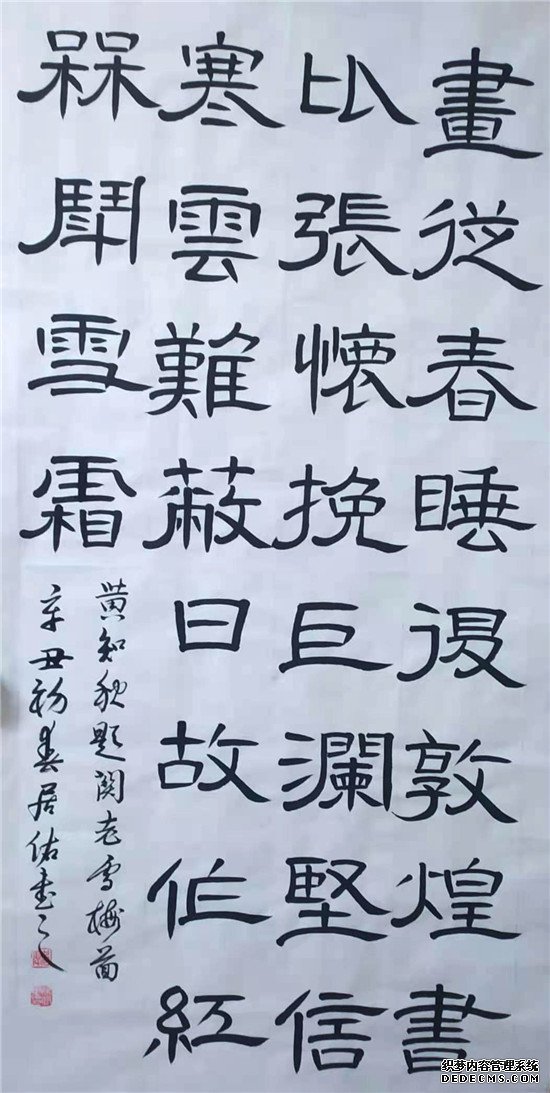 畫從春睡復敦煌書
比張懷挽巨瀾堅信
寒雲難蔽日故作紅
槑鬥雪霜
黄知秋題関老雪梅圖
辛丑初春居佑書之
织梦内容管理系统
DEDECMS.COM